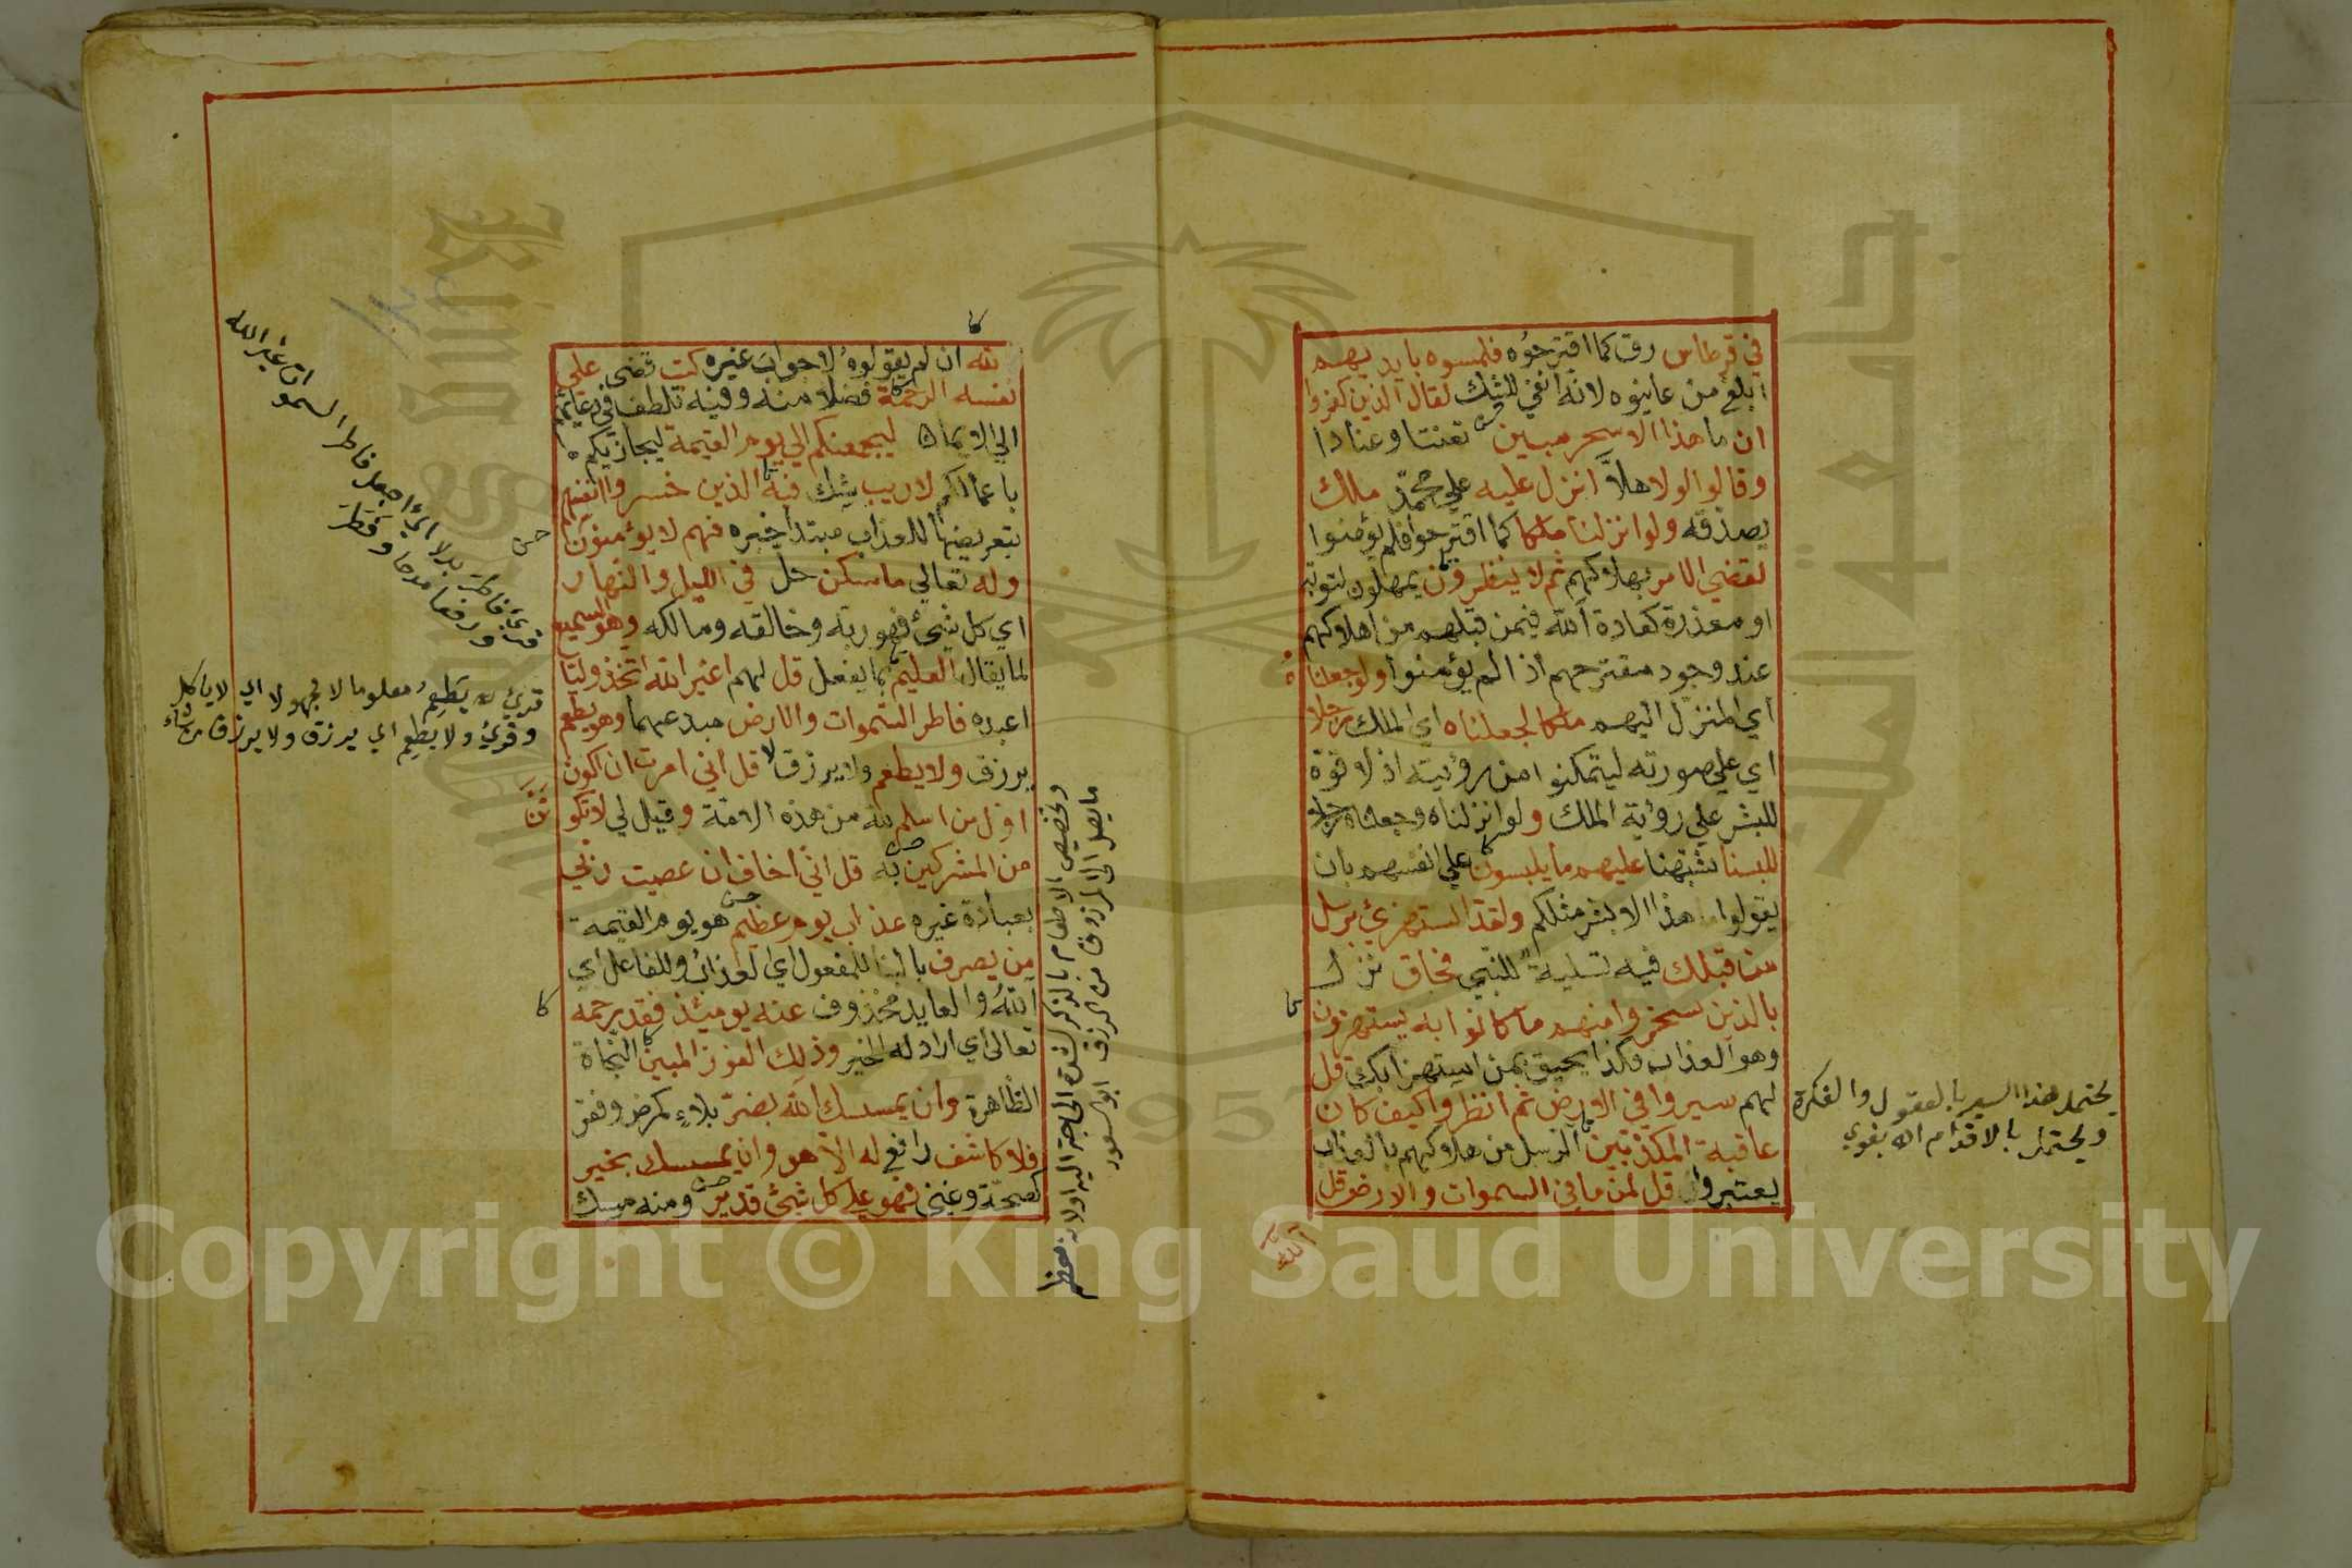 في قرطاس رق كما اقترحوه فلمسوه بايديهم
ابلغ من عاينوه لانه انفي للشك لقال الذين كفروا
ان ما هذا الا سحر مبين تعنتا وعنادا
وقالوا لولا هلا انزل عليه علي محمد ملك
يصدقه ولو انزلنا ملكا كما اقترحوا فلم يؤمنوا
لقضي الامر بهلاكهم ثم لا ينظرون يمهلون لتوبة
او معذرة كعادة الله فيمن قبلهم من اهلاكهم
عند وجود مقترحهم اذا لم يؤمنوا ولو جعلناه
اي المنزل اليهم ملكا لجعلناه اي الملك رجلا
اي علي صورته ليتمكنوا من رؤيته اذ لا قوة
للبشر علي رؤية الملك ولو انزلناه وجعلناه رجلا
للبسنا شبهنا عليهم ما يلبسون علي انفسهم بان
يقولوا هذا الا بشر مثلكم ولقد استهزئ برسل
من قبلك فيه تسلية للنبي فحاق نزل
بالذين سخروا منهم ما كانوا به يستهزؤن
وهو العذاب فكذا يحيق بمن استهزا بك قل
لهم سيروا في الارض ثم انظروا كيف كان
عاقبة المكذبين الرسل من هلاكهم بالعذاب
يعتبروا قل لمن ما في السموات والارض قل
لله
يحتمل هذا السير بالعقول والفكرة
ويحتمل بالاقدام اه بغوي
لله ان لم يقولوه لا جواب غيره كتب قضي علي
نفسه الرحمة فضلا منه وفيه تلطف في دعائهم
الي الايمان ليجمعنكم الي يوم القيمة ليجازيكم
باعمالكم لا ريب شك فيه الذين خسروا انفسهم
بتعريضها للعذاب مبتدا خبره فهم لا يؤمنون
وله تعالي ما سكن حل في الليل والنهار
اي كل شيئ فهو ربه وخالقه ومالكه وهو السميع
لما يقال العليم بما يفعل قل لهم اغير الله اتخذ وليا
اعبده فاطر السموات والارض مبدعهما وهو يطعم
يرزق ولا يطعم ولا يرزق لا قل اني امرت ان اكون
اول من اسلم لله من هذه الامة وقيل لي لا تكونن
من المشركين به قل اني اخاف ان عصيت ربي
بعبادة غيره عذاب يوم عظيم هو يوم القيمة
من يصرف بالبنا للمفعول اي العذاب وللفاعل اي
الله والعايد محذوف عنه يومئذ فقد رحمه
تعالى اي اراد له الخير وذلك الفوز المبين النجاة
الظاهرة وان يمسسك الله بضر بلاء كمرض وفقر
فلا كاشف رافع له الا هو وان يمسسك بخير
كصحة وغني فهو علي كل شيئ قدير ومنه مسك
قرئ فاطر بدلا اي اجعل فاطر السموات غير الله
ورفعا مدحا وفطر
قرئ يطعم معلوما لا مجهولا اي لا ياكل
وقرئ ولا يطعم اي يرزق ولا يرزق من شاء
وتخصيص الاطعام بالذكر لشدة الحاجة اليه او لانه معظم
ما يصل الى المرزوق من الرزق ابو السعود
Copyright © King Saud University
1957